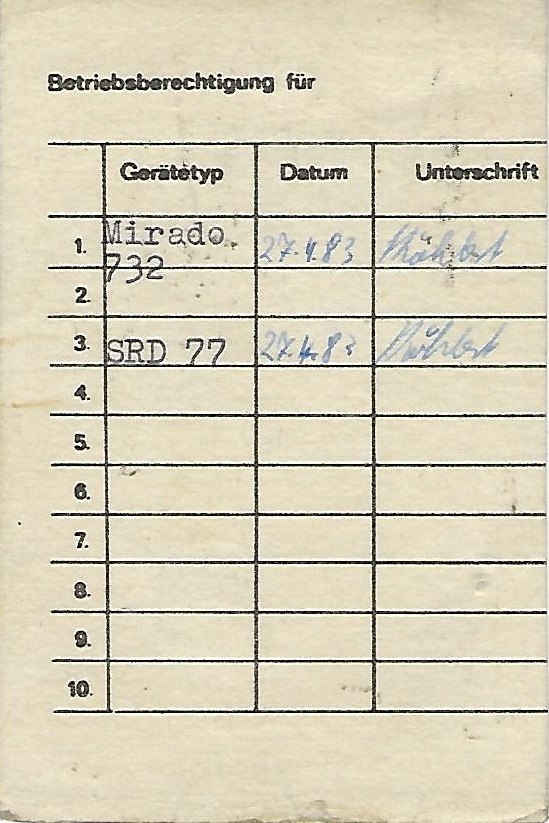 Betriebsberechtigung für
Gerätetyp Datum Unterschrift
1. Mirado 27.4.83
732
2.
3. SRD 77 27.4.83
4.
5.
6.
7.
8.
9.
10.